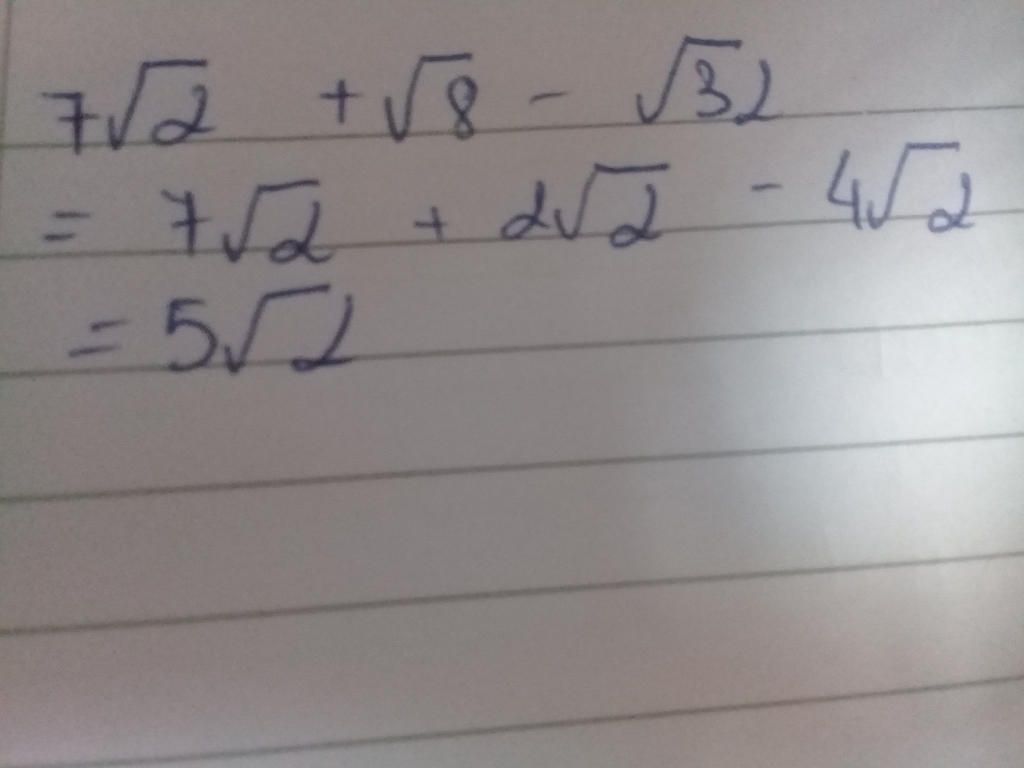 7√2 + √8 - √32
= 7√2 + 2√2 - 4√2
= 5√2